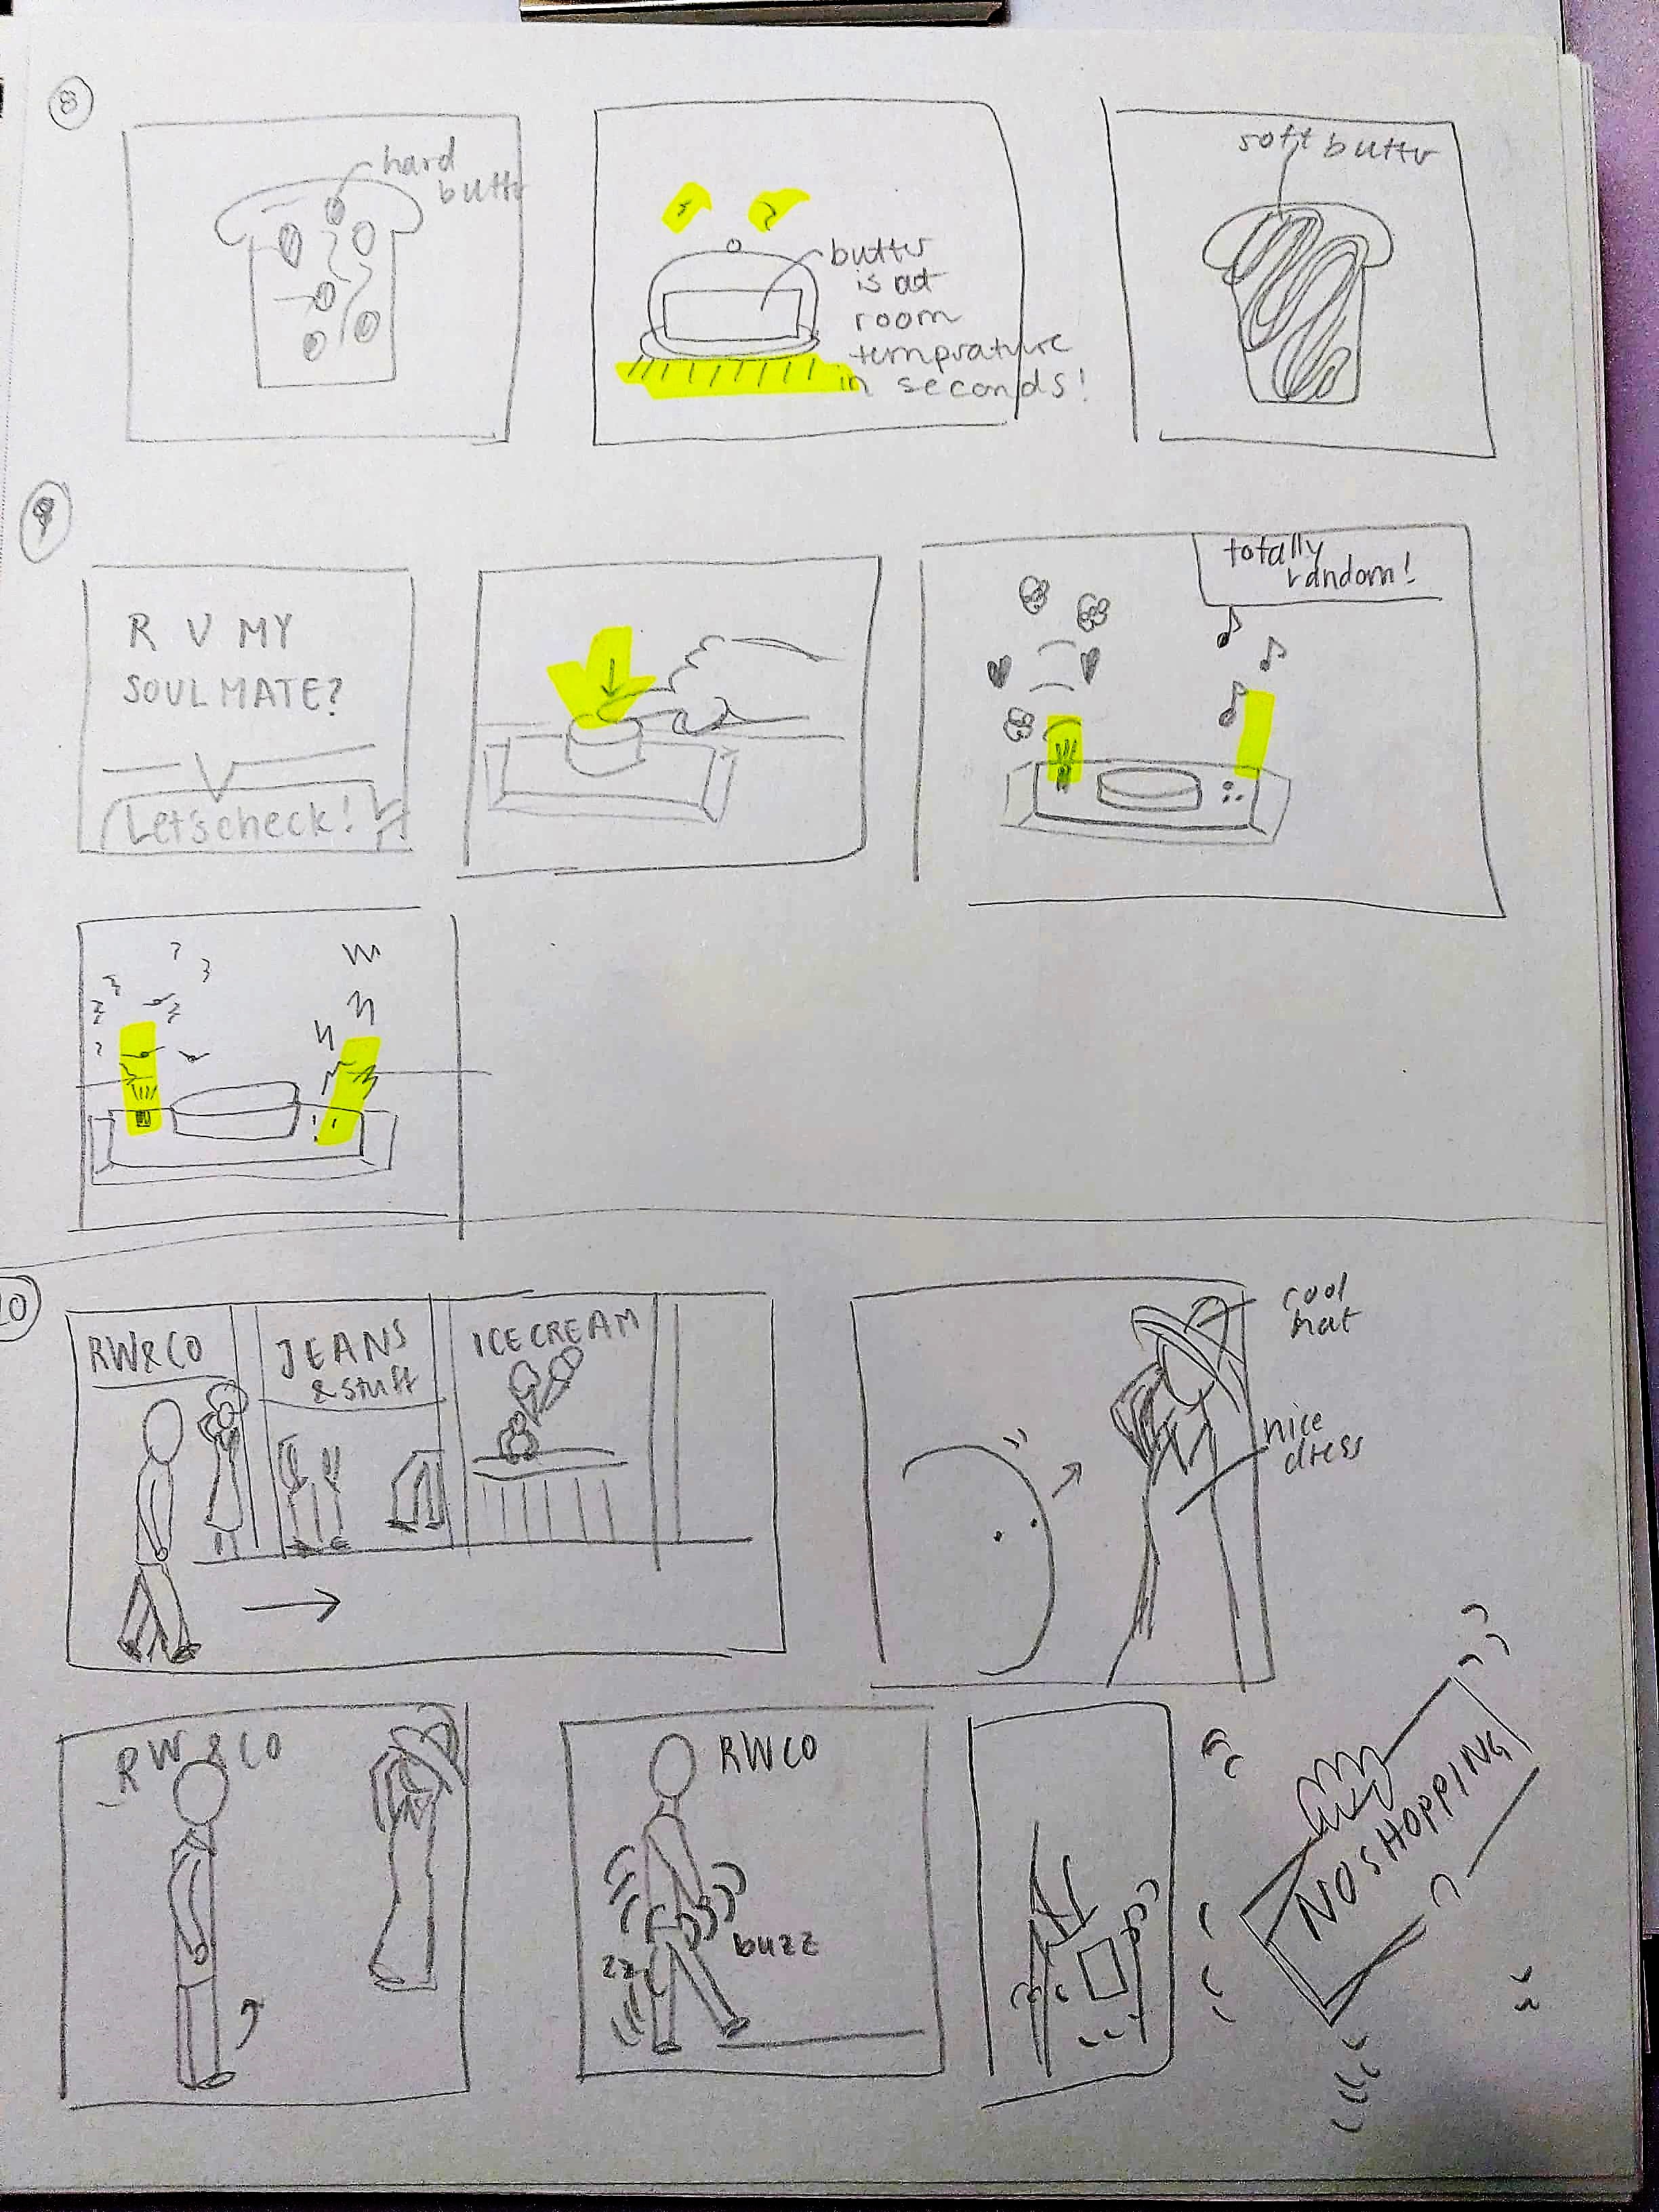 8
hard
butter
butter
is at
room
temprature
in seconds!
soft butter
9
R U MY
SOULMATE?
Let's check!
totally
random!
10
RW&CO
JEANS
& stuff
ICE CREAM
cool
hat
nice
dress
RW&CO
RWCO
buzz
zz
NO SHOPPING